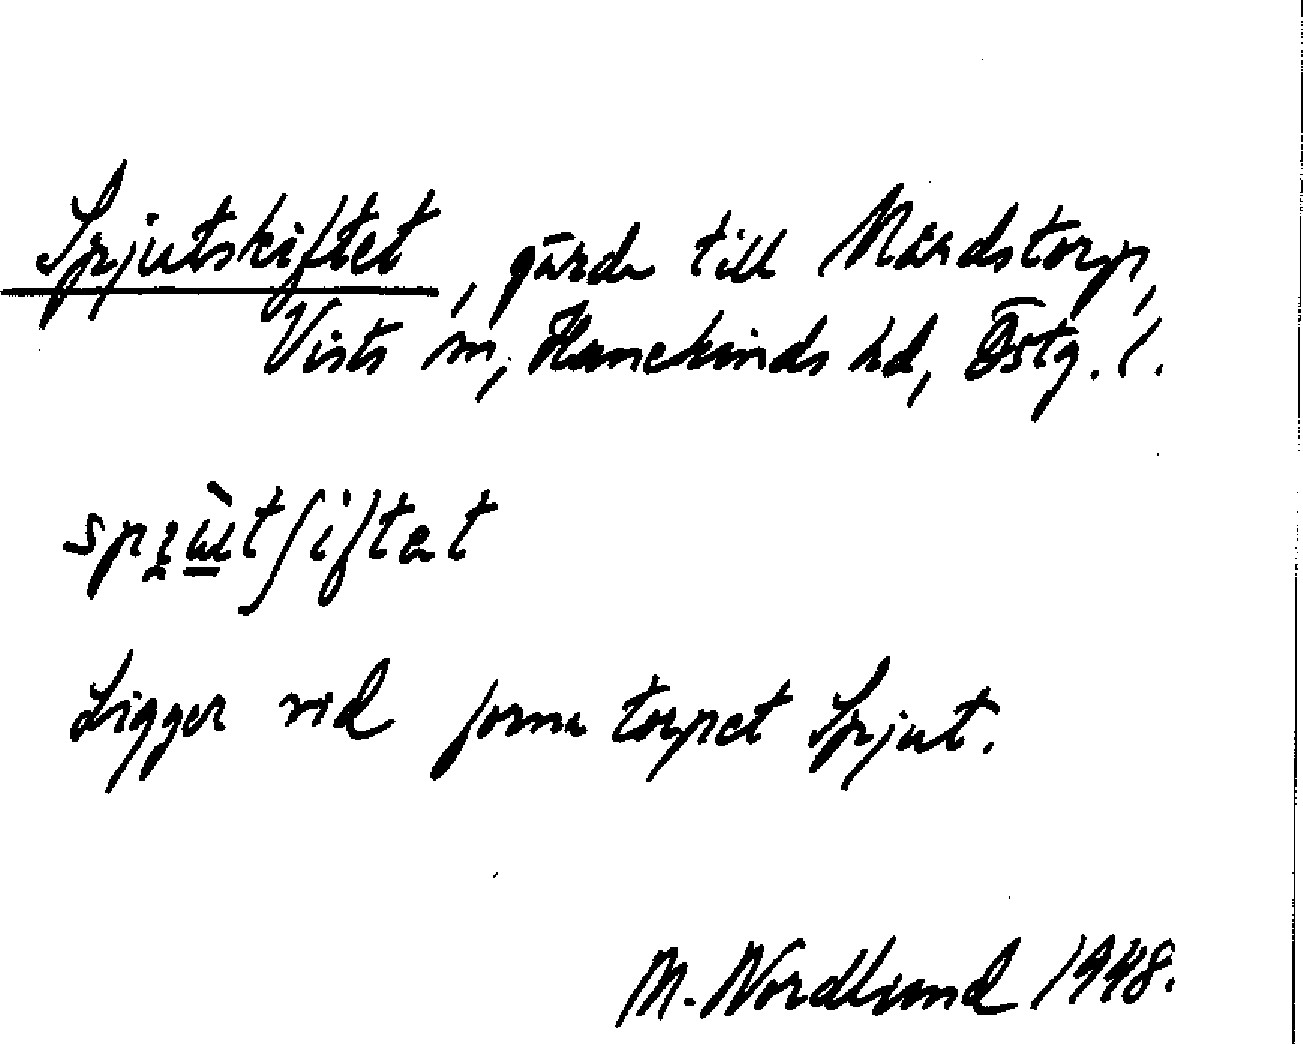 Spjutskiftet, gärde till Mårdstorp,
Vists sn, Hanekinds hd, Östg. l.
Ligger vid forna torpet Spjut.
M. Nordlund 1948.